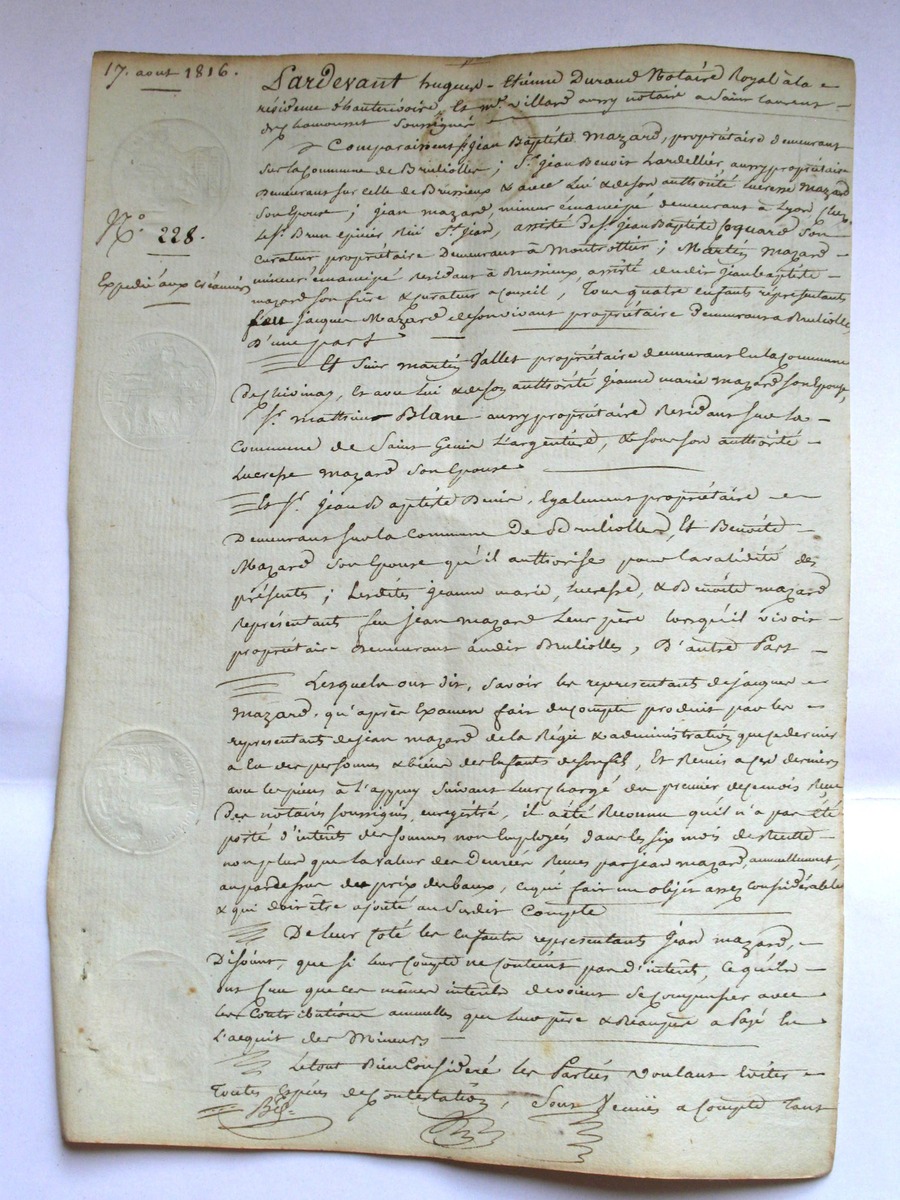 17. aout 1816.
N.° 228.
Expedié aux Créanciers
Pardevant hugues-Etienne Durand Notaire Royal à la
résidence d'hauterivoire, Et m.e Villard aussy notaire a Saint laurent
de Chamousset Soussignés
Comparaissent s.r jean Baptiste Mazard, propriétaire demeurant
Sur la Commune de Brullioles; S.r jean Benoit Lardellier aussy propriétaire
Demeurant sur celle de Brussieux & avec Lui & de son authorité Lucresse Mazard
Son Epouse; jean mazard mineur émancipé demeurant à Lyon, chez
le S.r Brun Epicier Rüe S.t jean, assisté de S.r jean Baptiste Son
Curateur propriétaire Demeurant à Montrottier; Martin Mazard
mineur émancipé Residant à Brussieux, assisté dudit jean baptiste
mazard son frère & curateur a Conseil, Tous quatre enfants réprésentants
feu jacques Mazard de son vivant propriétaire Demeurant a Brulliolles,
D'une part
Et Sieur martin Vallet propriétaire demeurant En la Commune
De, Et avec lui & de son authorité jeanne marie mazard son Epouse,
S.r mathieu Blanc aussy propriétaire Residant sur la
Commune de Saint Genis L'argentière, & sous son authorité
Lucresse mazard son Epouse
Et S.r jean Baptiste Denis, Egalement propriétaire
Demeurant sur la Commune De Brulliolles, Et Benoite
Mazard Son Epouse qu'il authorise pour la validité des
présentes; Lesdites jeanne marie, Lucresse, & Benoite mazard
Représentants feu jean mazard Leur père lorsqu'il vivoit
propriétaire demeurant audit Brulliolles, D'autre Part
Lesquels ont dit, Savoir les representants de jacques
Mazard, qu'après Examen fait du Compte produit par les
représentants de jean mazard de la Régie & administration que ce dernier
a Eu des personnes & biens des Enfants de son fils, Et Remis a ces derniers
avec les pièces à L'appuy Suivant Leur chargé du premier de ce mois Reçu
Des notaires soussignés, enregistré, il a été Reconnu qu'il n'a pas été
porté d'interêts des sommes non Employées dans les six mois de Recette
non plus que la valeur des Denrées Reçues par jean mazard, annuellement,
au pardessus du prix des baux, ce qui fait un objet assez considérable
& qui doit être ajouté au Susdit Compte
De leur Coté les Enfants représentants jean mazard,
Disoient, que si leur Compte ne Contient pas d'interêt, ce qu'ils
ont Cru que ces mêmes interêts devoient se Compenser avec
les Contributions annuelles que leur père & a Payé En
L'acquit des Mineurs
Le tout Bien Considéré les Parties Voulant Eviter
Toutes Espèces de Contestation, Sont Venües a Compte Tant